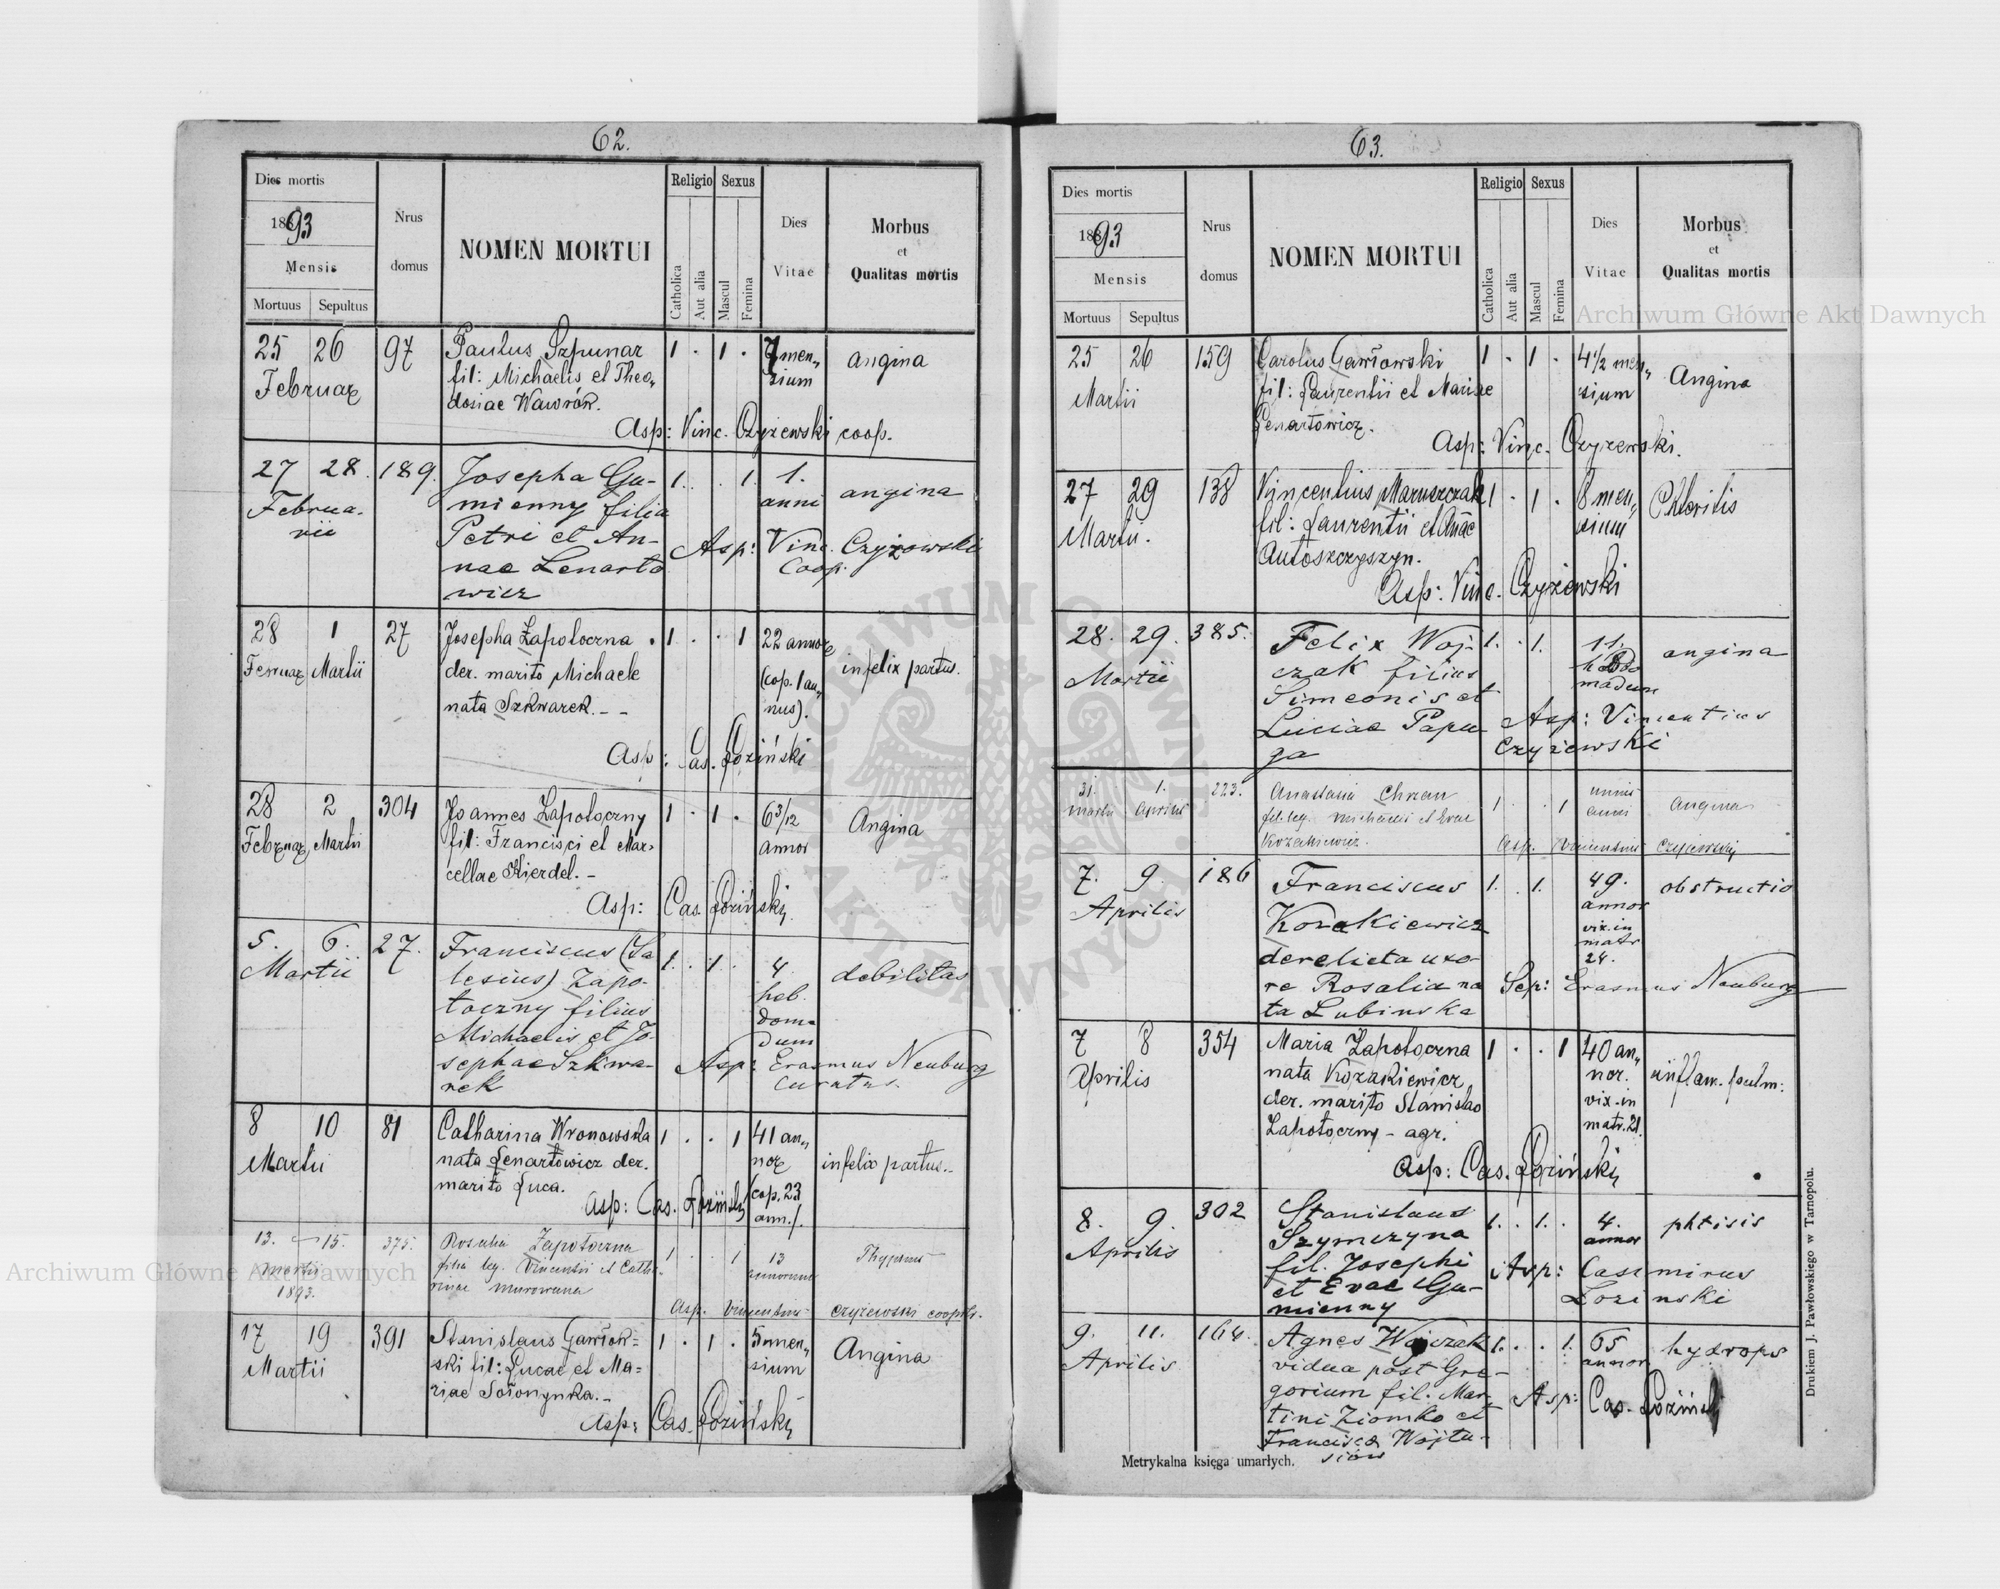 62.
Dies mortis
1893
Mensis
Mortuus Sepultus
Nrus
domus
NOMEN MORTUI
Religio Sexus
Catholica
Aut alia
Mascul
Femina
Dies
Vitae
Morbus
et
Qualitas mortis
25 26 97 Paulus Szpunar 1 . 1 . 7 men„ angina
Februar fil: Michaelis et Theo„ sium
dosiae Wawrów.
Asp: Vinc. Czyżewski coop.
27 28. 189. Josepha Gu- 1. . . 1. 1. angina
Februa- mienny filia anni
rii Petri et An- Asp: Vinc. Czyżowski
nae Lenarto Coop.
wicz
28 1 27 Josepha Zapotoczna 1 . . 1 22 annor infelix partus.
Martii der. marito Michaele (cop. 1 an„
nata Szkwarek. - - nus).
Asp: Cas. Łoziński
28 2 304 Joannes Zapotoczny 1 . 1 . 6 3/12 Angina
Februar Martii fil: Francisci et Mar- annor
cellae Kierdel. -
Asp: Cas. Łoziński
5. 6. 27. Franciscus (Sa 1. . 1. 4. debilitas
Martii lesius) Zapo- heb.
toczny filius doma
Michaelis et Jo- dum
sephae Szkwa- Asp: Erasmus Neuburg
rek curatus.
8 10 81 Catharina Wronowska 1 . . 1 41 an„ infelix partus..
Martii nata Lenartowicz der. nor
marito Luca. (cop. 23
Asp: Cas. Łoziński ann.).
13. 15. 375. Rosalia Zapotoczna 1 . . 1 13
Martii filia leg. Vincentii et Catha-
1893. rinae Murowana
Asp. Vincentius Czyżewski
17 19 391 Stanislaus Gawłow= 1 . 1 . 5 men„ Angina
Martii ski fil: Lucae et Ma= sium
riae Sołonynka. -
Asp: Cas. Łoziński
63.
Dies mortis
1893
Mensis
Mortuus Sepultus
Nrus
domus
NOMEN MORTUI
Religio Sexus
Catholica
Aut alia
Mascul
Femina
Dies
Vitae
Morbus
et
Qualitas mortis
25 26 159 Carolus Gawłowski 1 . 1 . 4 1/2 men„ Angina
Martii fil: Laurentii et Mariae sium
Lenartowicz.
Asp: Vinc. Czyżewski.
27 29 138 Vincentius Maruszczak 1 . 1 . 8 men„
Martii. fil: Laurentii et Annae sium
Antoszczyszyn.
Asp: Vinc. Czyżewski
28. 29. 385. Felix Woj- 1. . 1. 11. angina
Martii czak filius hebdo
Simeonis et madum
Luciae Papu Asp: Vincentius
ga Czyżewski
31. 1. 223. Anastasia Chrzan 1 . . 1 unius angina
Martii Aprilis fil. leg. Michaelis et Evae anni
Kozakiewicz. Asp. Vincentius Czyżewski
7. 9. 186 Franciscus 1. . 1. 49. obstructio
Aprilis Kozakiewicz annor
derelicta uxo- vix. in
re Rosalia na matr
ta Lubinska 24.
Sep: Erasmus Neuburg
7 8 354 Maria Zapotoczna 1 . . 1 40 an„ inflam. pulm:
Aprilis nata Kozakiewicz nor.
der. marito Stanislao vix. in
Zapotoczny - agr. matr. 21.
Asp: Cas. Łoziński
8. 9. 302 Stanislaus 1. . 1. . 4. phtisis
Aprilis Szymczyna annor
fil. Josephi Asp: Casimirus
et Evae Gu- Łozinski
mienny
9. 11. 164. Agnes Wojczak 1. . . 1. 65 hydrops
Aprilis vidua post Gre- annor
gorium fil. Mar Asp: Cas. Łoziński
tini Ziomko et
Francisca Wojtu-
siów
Metrykalna księga umarłych.
Drukiem J. Pawłowskiego w Tarnopolu.
Archiwum Główne Akt Dawnych
Archiwum Główne Akt Dawnych
ARCHIWUM GŁÓWNE AKT DAWNYCH